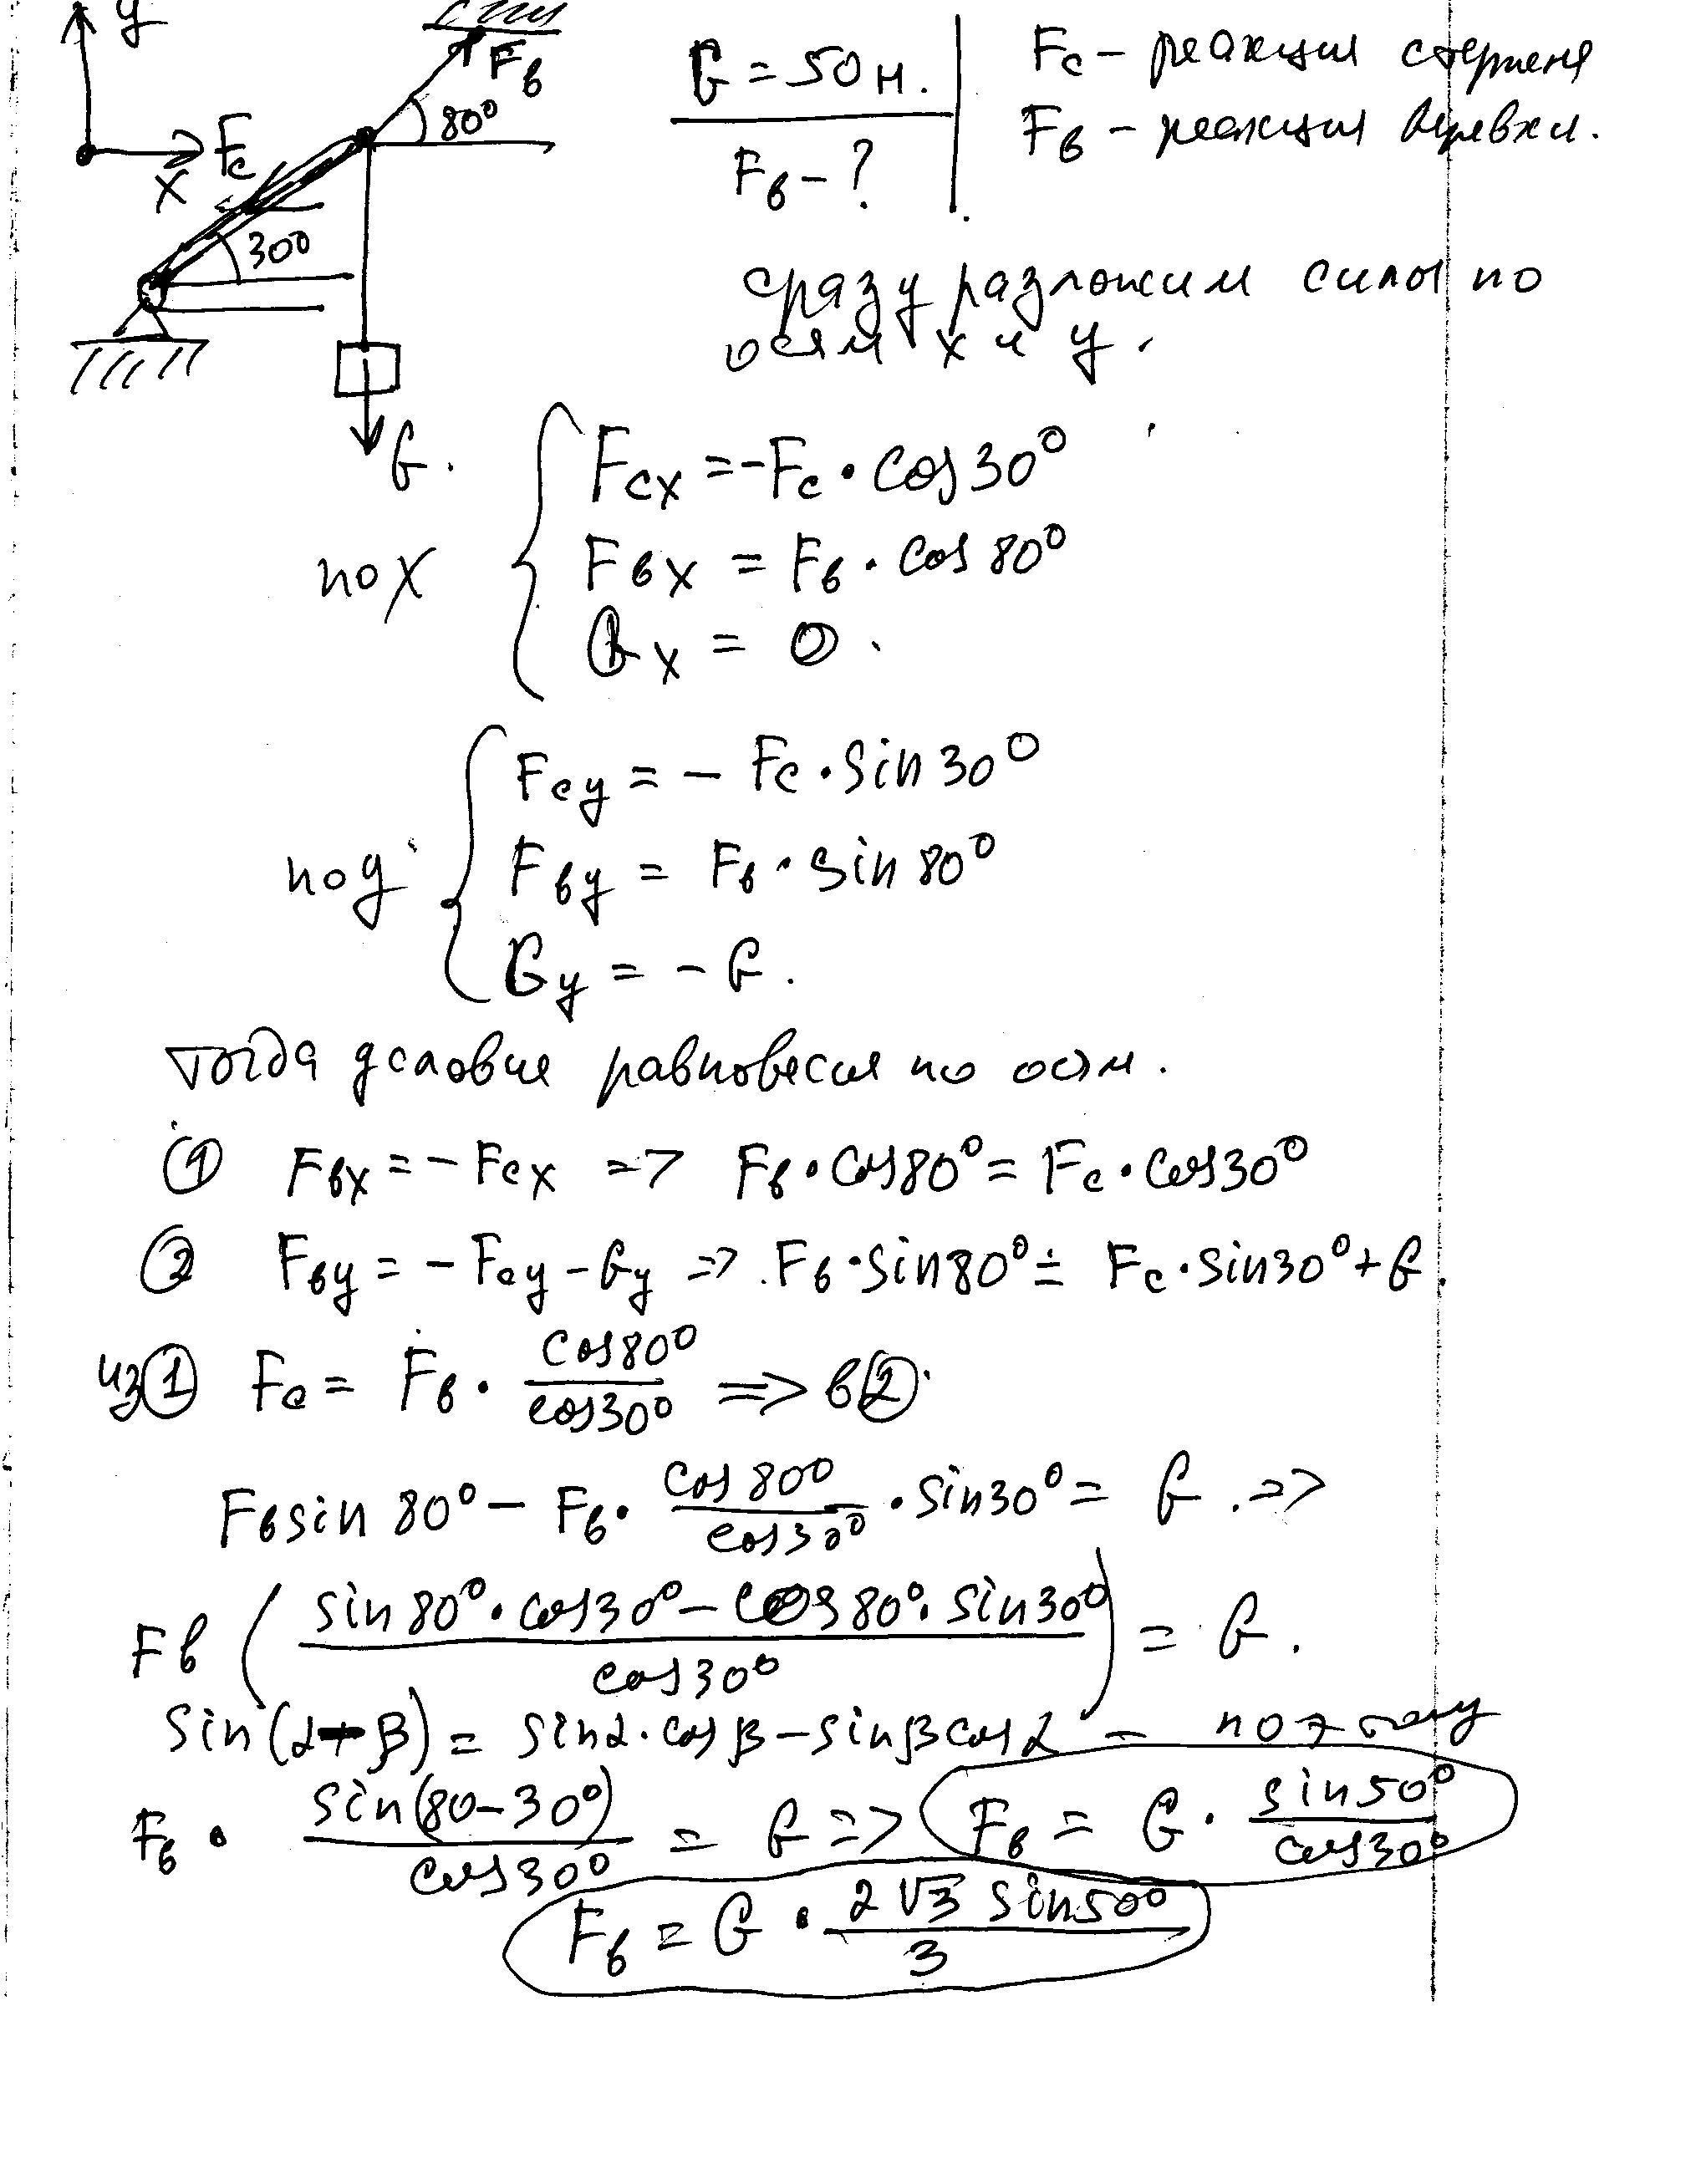 y
Fв
80°
x
Fc
30°
G.
G = 50 н.
Fв - ?
Fc - реакция стержня
Fв - реакция верёвки.
сразу разложим силы по
осям x и y.
по x
Fcx = -Fc · cos 30°
Fвx = Fв · cos 80°
Gx = 0.
по y
Fcy = - Fc · sin 30°
Fвy = Fв · sin 80°
Gy = - G.
тогда условие равновесия по осям.
① Fвx = - Fcx => Fв · cos 80° = Fc · cos 30°
② Fвy = - Fcy - Gy => Fв · sin 80° = Fc · sin 30° + G.
из ① Fc = Fв · cos 80° / cos 30° => в ②
Fв sin 80° - Fв · cos 80° / cos 30° · sin 30° = G. =>
Fв ( sin 80° · cos 30° - cos 80° · sin 30° / cos 30° ) = G.
sin(α - β) = sin α · cos β - sin β cos α - поэтому
Fв · sin(80 - 30°) / cos 30° = G => Fв = G · sin 50° / cos 30°
Fв = G · 2√3 sin 50° / 3